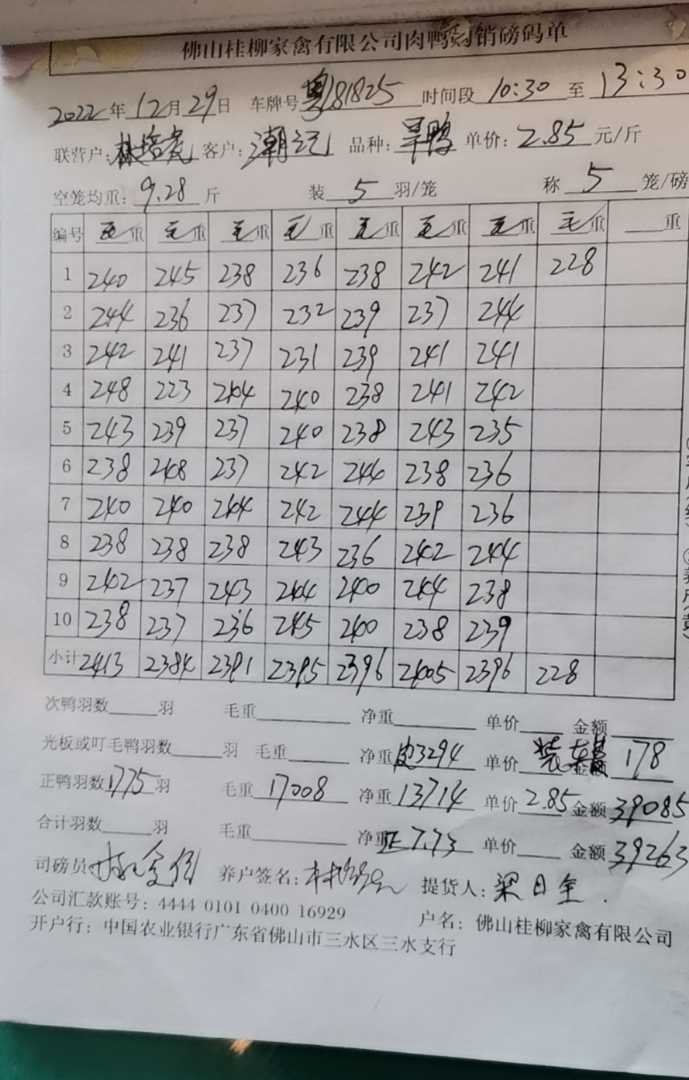 佛山桂柳家禽有限公司肉鸭购销磅码单
2022年12月29日 车牌号粤181825 时间段10:30至13:30
联营户: 客户:潮记 品种:旱鸭 单价:2.85元/斤
空笼均重:9.28斤 装5羽/笼 称5笼/磅
编号 毛重 毛重 毛重 毛重 毛重 毛重 毛重 毛重 重
1 240 245 238 236 238 242 241 228
2 244 236 237 232 239 237 244
3 242 241 237 231 239 241 241
4 248 223 244 240 238 241 242
5 243 239 237 240 238 243 235
6 238 248 237 242 244 238 236
7 240 240 244 242 244 239 236
8 238 238 238 243 236 242 244
9 242 237 243 244 240 244 238
10 238 237 236 245 240 238 239
小计 2413 2384 2391 2395 2396 2405 2396 228
次鸭羽数 羽 毛重 净重 单价 金额
光板或叮毛鸭羽数 羽 毛重 净重皮3294 单价 装车 178
正鸭羽数1775羽 毛重17008 净重13714 单价2.85 金额39085
合计羽数 毛重 净重正7.73 单价 金额39263
司磅员 养户签名: 提货人:梁日全.
公司汇款账号:4444 0101 0400 16929 户名:佛山桂柳家禽有限公司
开户行:中国农业银行广东省佛山市三水区三水支行